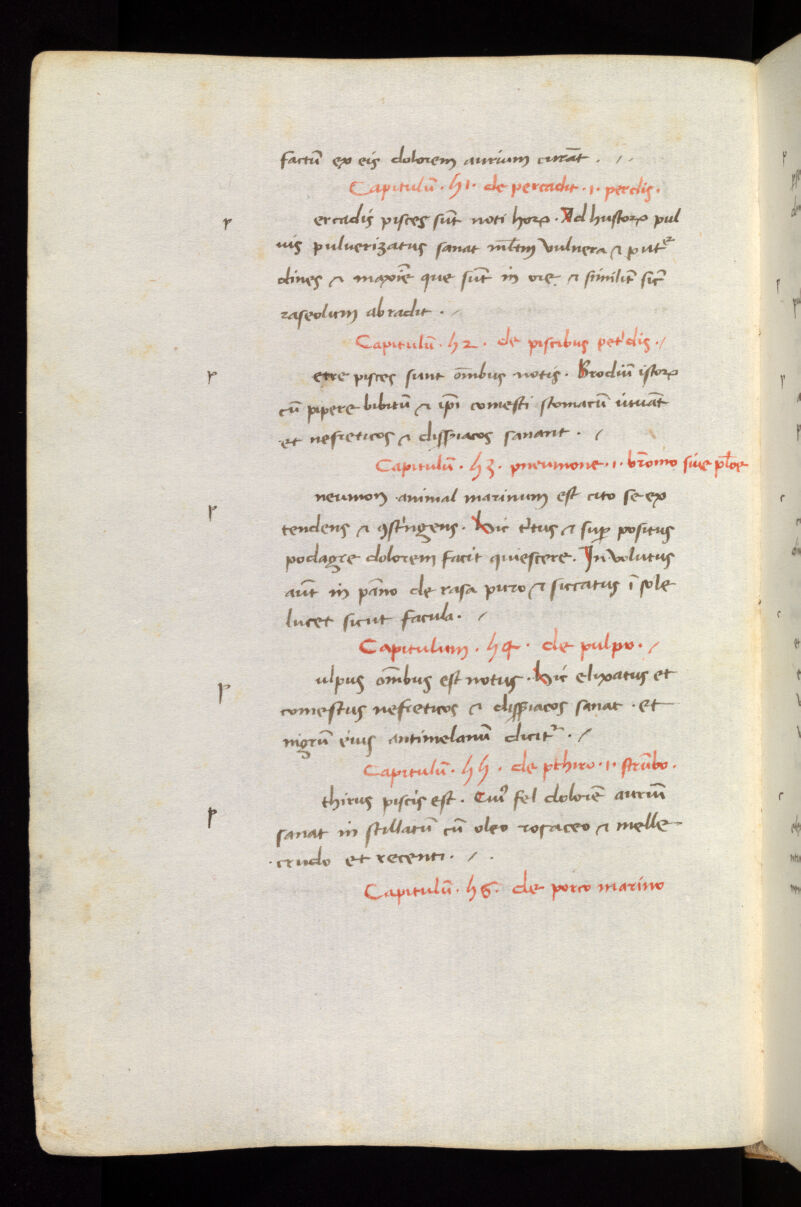 factū ex eis dolorem aurium curāt .
Capitulū . h1 . de percadit . i . perdis .
p ercadis pisces sūt noti horꝝ . Ad hustorꝝ pul
uis puluerizatus sanat ml̄tm vulnera ⁊ putre
dines ⁊ maxīe que sūt in ore ⁊ similit̄ sic̄
raseolum abradit .
Capitulū . h2 . de piscibus pet'dis .
p etre pisces sunt om̄ibus notis . Brodiū istorꝝ
cū pipere bibitū ⁊ ip̄i comesti stomacū iuuāt
et nefreticos ⁊ disīniacos sanant .
Capitulū . h3 . pneumone . i . br̄omo siue pl̄oe
p neumon animal marinum est cito se ex
tendens ⁊ ꝯst'ngens . Hic t'tus ⁊ sup̄ positus
podagre dolorem facit quiescere . Involutus
aūt in pāno de rasa puro ⁊ siccatus ī sole
lucet sicut facula .
Capitulum . h4 . de pulpo .
p ulpus om̄ibus est notus . Hic elixatus et
comestus nefreticos ⁊ sanat . et
nigrū eius antimelanū dicit̄ .
Capitulū . hh . de pthiro . i . strūbo .
p thirus piscis est . Cuiꝰ fel dolorē auriū
sanat in stillatū cū oleo rosaceo ⁊ melle
crudo et recenti .
Capitulū . h6 . de porco marino